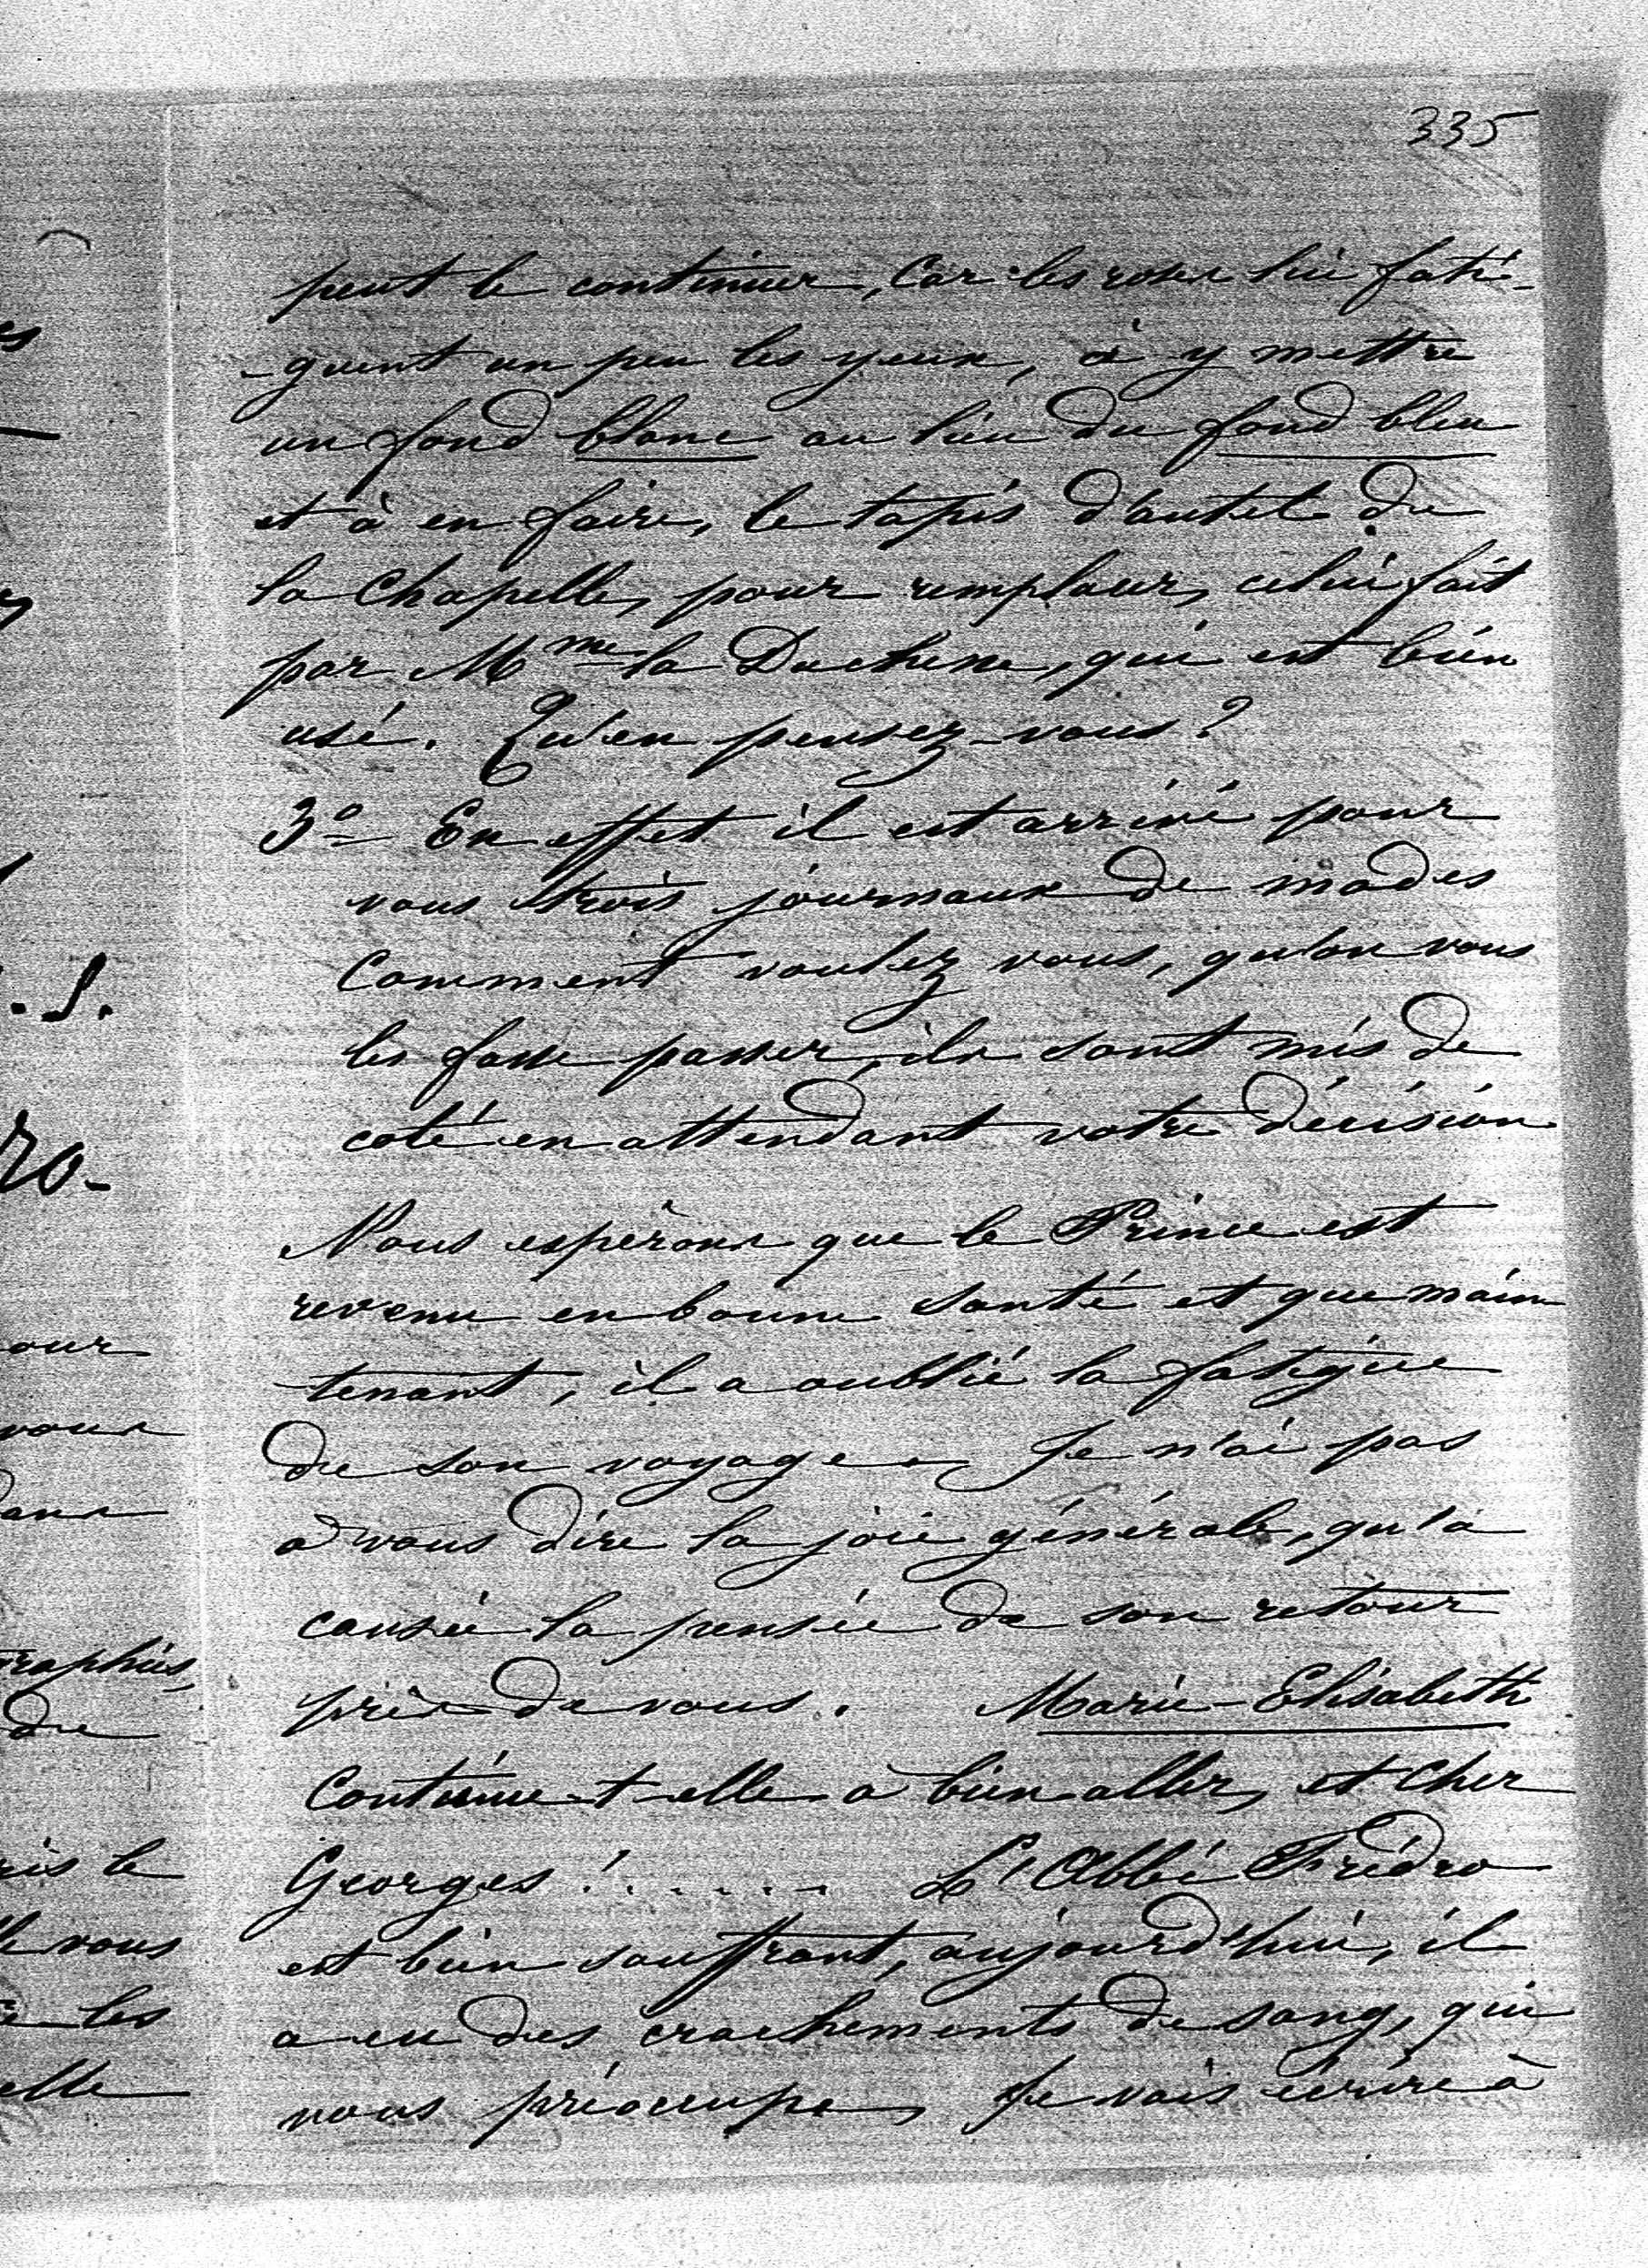 335
peut le continuer, Car les roses lui fati-
-guent un peu les yeux, à y mettre
un fond blanc au lieu du fond bleu
et à en faire, le tapis d'autel de
la Chapelle, pour remplacer, celui fait
par Mme la Duchesse, qui est bien
usé. Qu'en pensez-vous?
3o En effet il est arrivé pour
vous trois journaux de modes
Comment voulez vous, qu'on vous
les fasse passer, ils sont mis de
coté en attendant votre décision
Nous espérons que le Prince est
revenu en bonne santé et que main
tenant, il a oublié la fatigue
de son voyage. Je n'ai pas
à vous dire la joie générale, qu'a
causée la pensée de son retour
près de vous. Marie-Elisabeth
Continue-t-elle à bien aller, et cher
Georges!...... L'Abbé Frédro
est bien souffrant, aujourd'hui, il
a eu des crachements de sang, qui
nous préoccupe, Je vais écrire à